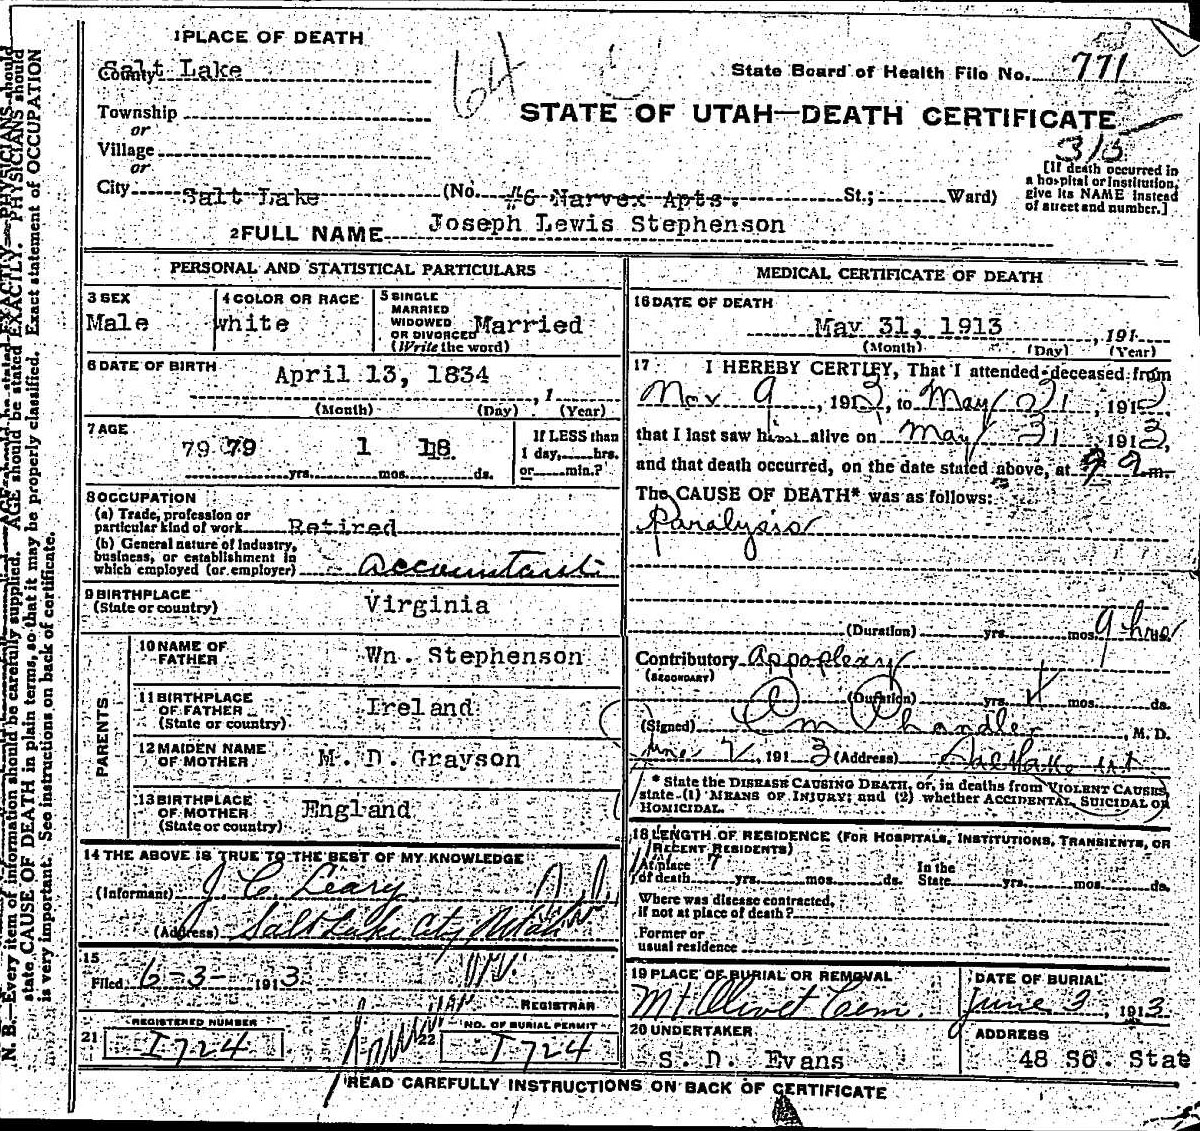 1 PLACE OF DEATH
County Salt Lake
Township
or
Village
or
City Salt Lake (No. #6 Narvex Apts. St.; Ward)
64
State Board of Health File No. 771
STATE OF UTAH—DEATH CERTIFICATE
313
[If death occurred in a hospital or institution, give its NAME instead of street and number.]
2 FULL NAME Joseph Lewis Stephenson
PERSONAL AND STATISTICAL PARTICULARS
3 SEX
Male
4 COLOR OR RACE
white
5 SINGLE
MARRIED
WIDOWED
OR DIVORCED
(Write the word)
Married
6 DATE OF BIRTH
April 13, 1834
, 1
(Month) (Day) (Year)
7 AGE
79 79 yrs. 1 mos. 18 ds.
If LESS than
1 day, hrs.
or min.?
8 OCCUPATION
(a) Trade, profession or
particular kind of work Retired
(b) General nature of industry,
business, or establishment in
which employed (or employer) accountant
9 BIRTHPLACE
(State or country) Virginia
PARENTS
10 NAME OF
FATHER Wn. Stephenson
11 BIRTHPLACE
OF FATHER
(State or country) Ireland
12 MAIDEN NAME
OF MOTHER M. D. Grayson
13 BIRTHPLACE
OF MOTHER
(State or country) England
14 THE ABOVE IS TRUE TO THE BEST OF MY KNOWLEDGE
(Informant) J C Leary
(Address) Salt Lake City Utah
15
Filed 6-3- 1913
REGISTRAR
21 REGISTERED NUMBER
I724
22 NO. OF BURIAL PERMIT
I724
MEDICAL CERTIFICATE OF DEATH
16 DATE OF DEATH
May 31, 1913 , 191
(Month) (Day) (Year)
17 I HEREBY CERTIFY, That I attended deceased from
Nov 9, 1913, to May 31, 1913
that I last saw him alive on May 31, 1913,
and that death occurred, on the date stated above, at 9 a m.
The CAUSE OF DEATH* was as follows:
Paralysis
(Duration) yrs. mos. 9 hrs
Contributory Appoplexy
(SECONDARY)
(Duration) yrs. mos. ds.
(Signed) Chandler, M. D.
June 2, 1913 (Address) Salt Lake
* State the DISEASE CAUSING DEATH, or, in deaths from VIOLENT CAUSES,
state (1) MEANS OF INJURY; and (2) whether ACCIDENTAL, SUICIDAL OR
HOMICIDAL.
18 LENGTH OF RESIDENCE (FOR HOSPITALS, INSTITUTIONS, TRANSIENTS, OR
RECENT RESIDENTS)
At place
of death 7 yrs. mos. ds.
In the
State yrs. mos. ds.
Where was disease contracted,
if not at place of death?
Former or
usual residence
19 PLACE OF BURIAL OR REMOVAL
Mt Olivet Cem.
DATE OF BURIAL
June 3, 1913
20 UNDERTAKER
S. D. Evans
ADDRESS
48 So. State
READ CAREFULLY INSTRUCTIONS ON BACK OF CERTIFICATE
N. B.—Every item of information should be carefully supplied. AGE should be stated EXACTLY. PHYSICIANS should
state CAUSE OF DEATH in plain terms, so that it may be properly classified. Exact statement of OCCUPATION
is very important. See instructions on back of certificate.